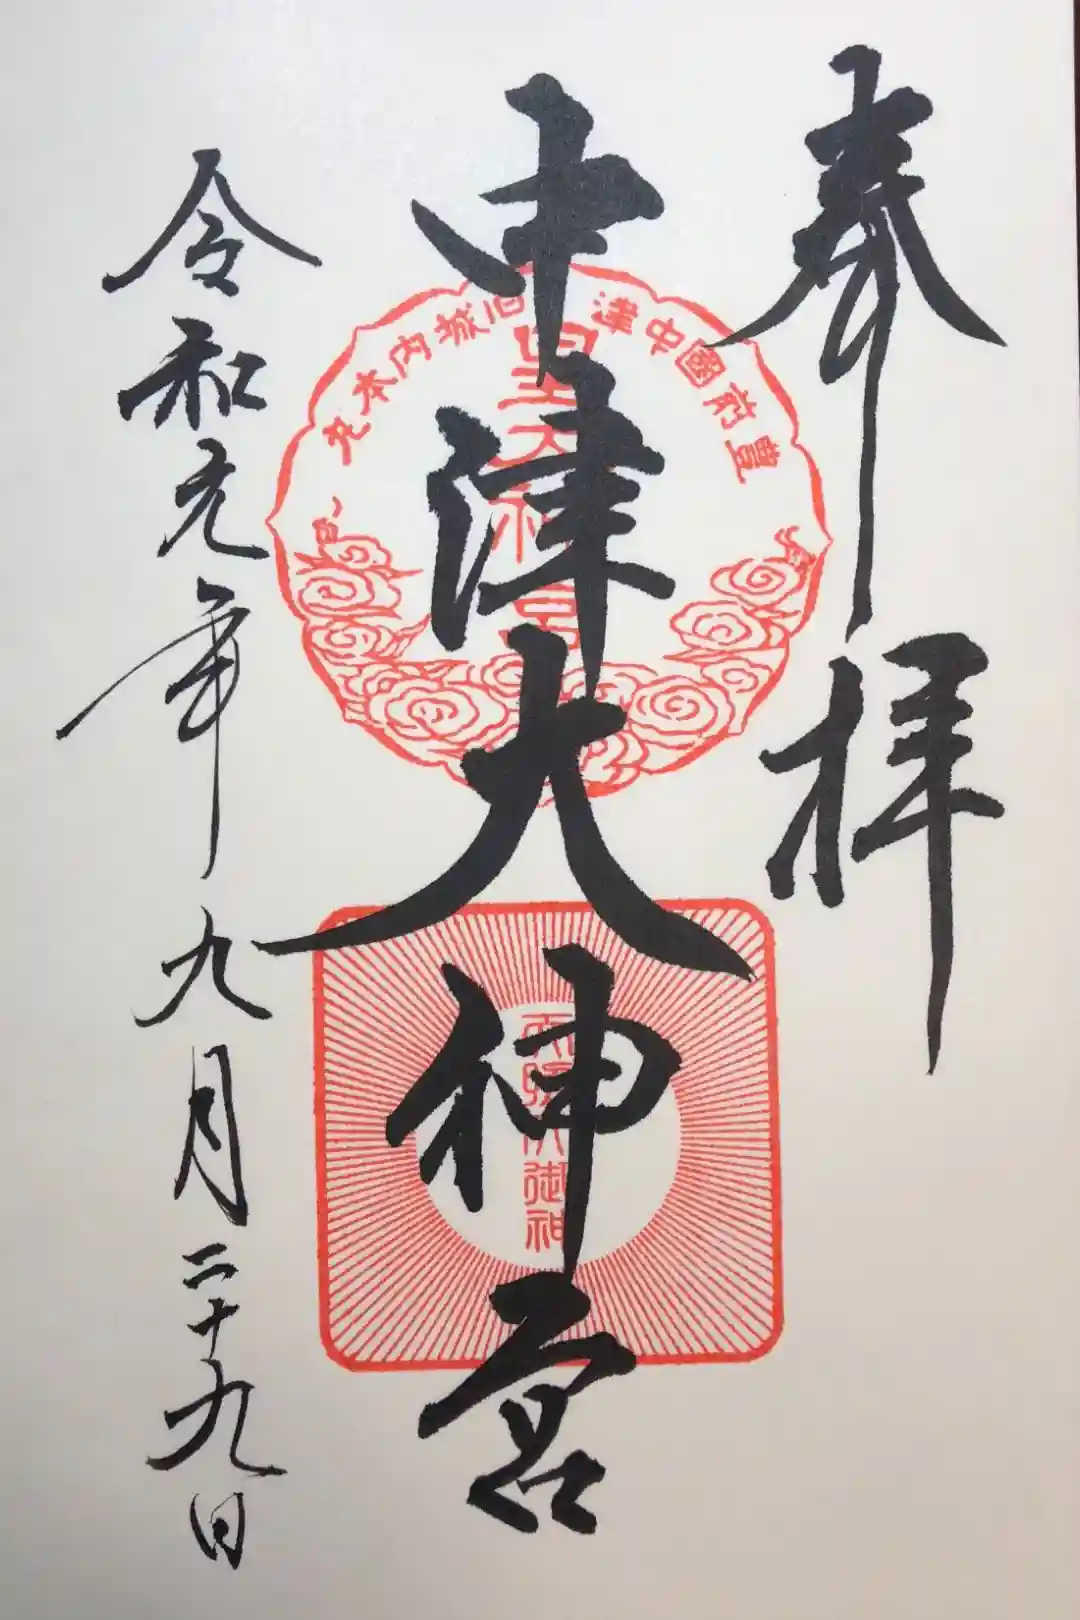 奉拝
中津大神宮
豊前國中津旧城内本丸
皇大神宮
御神
令和元年九月二十九日